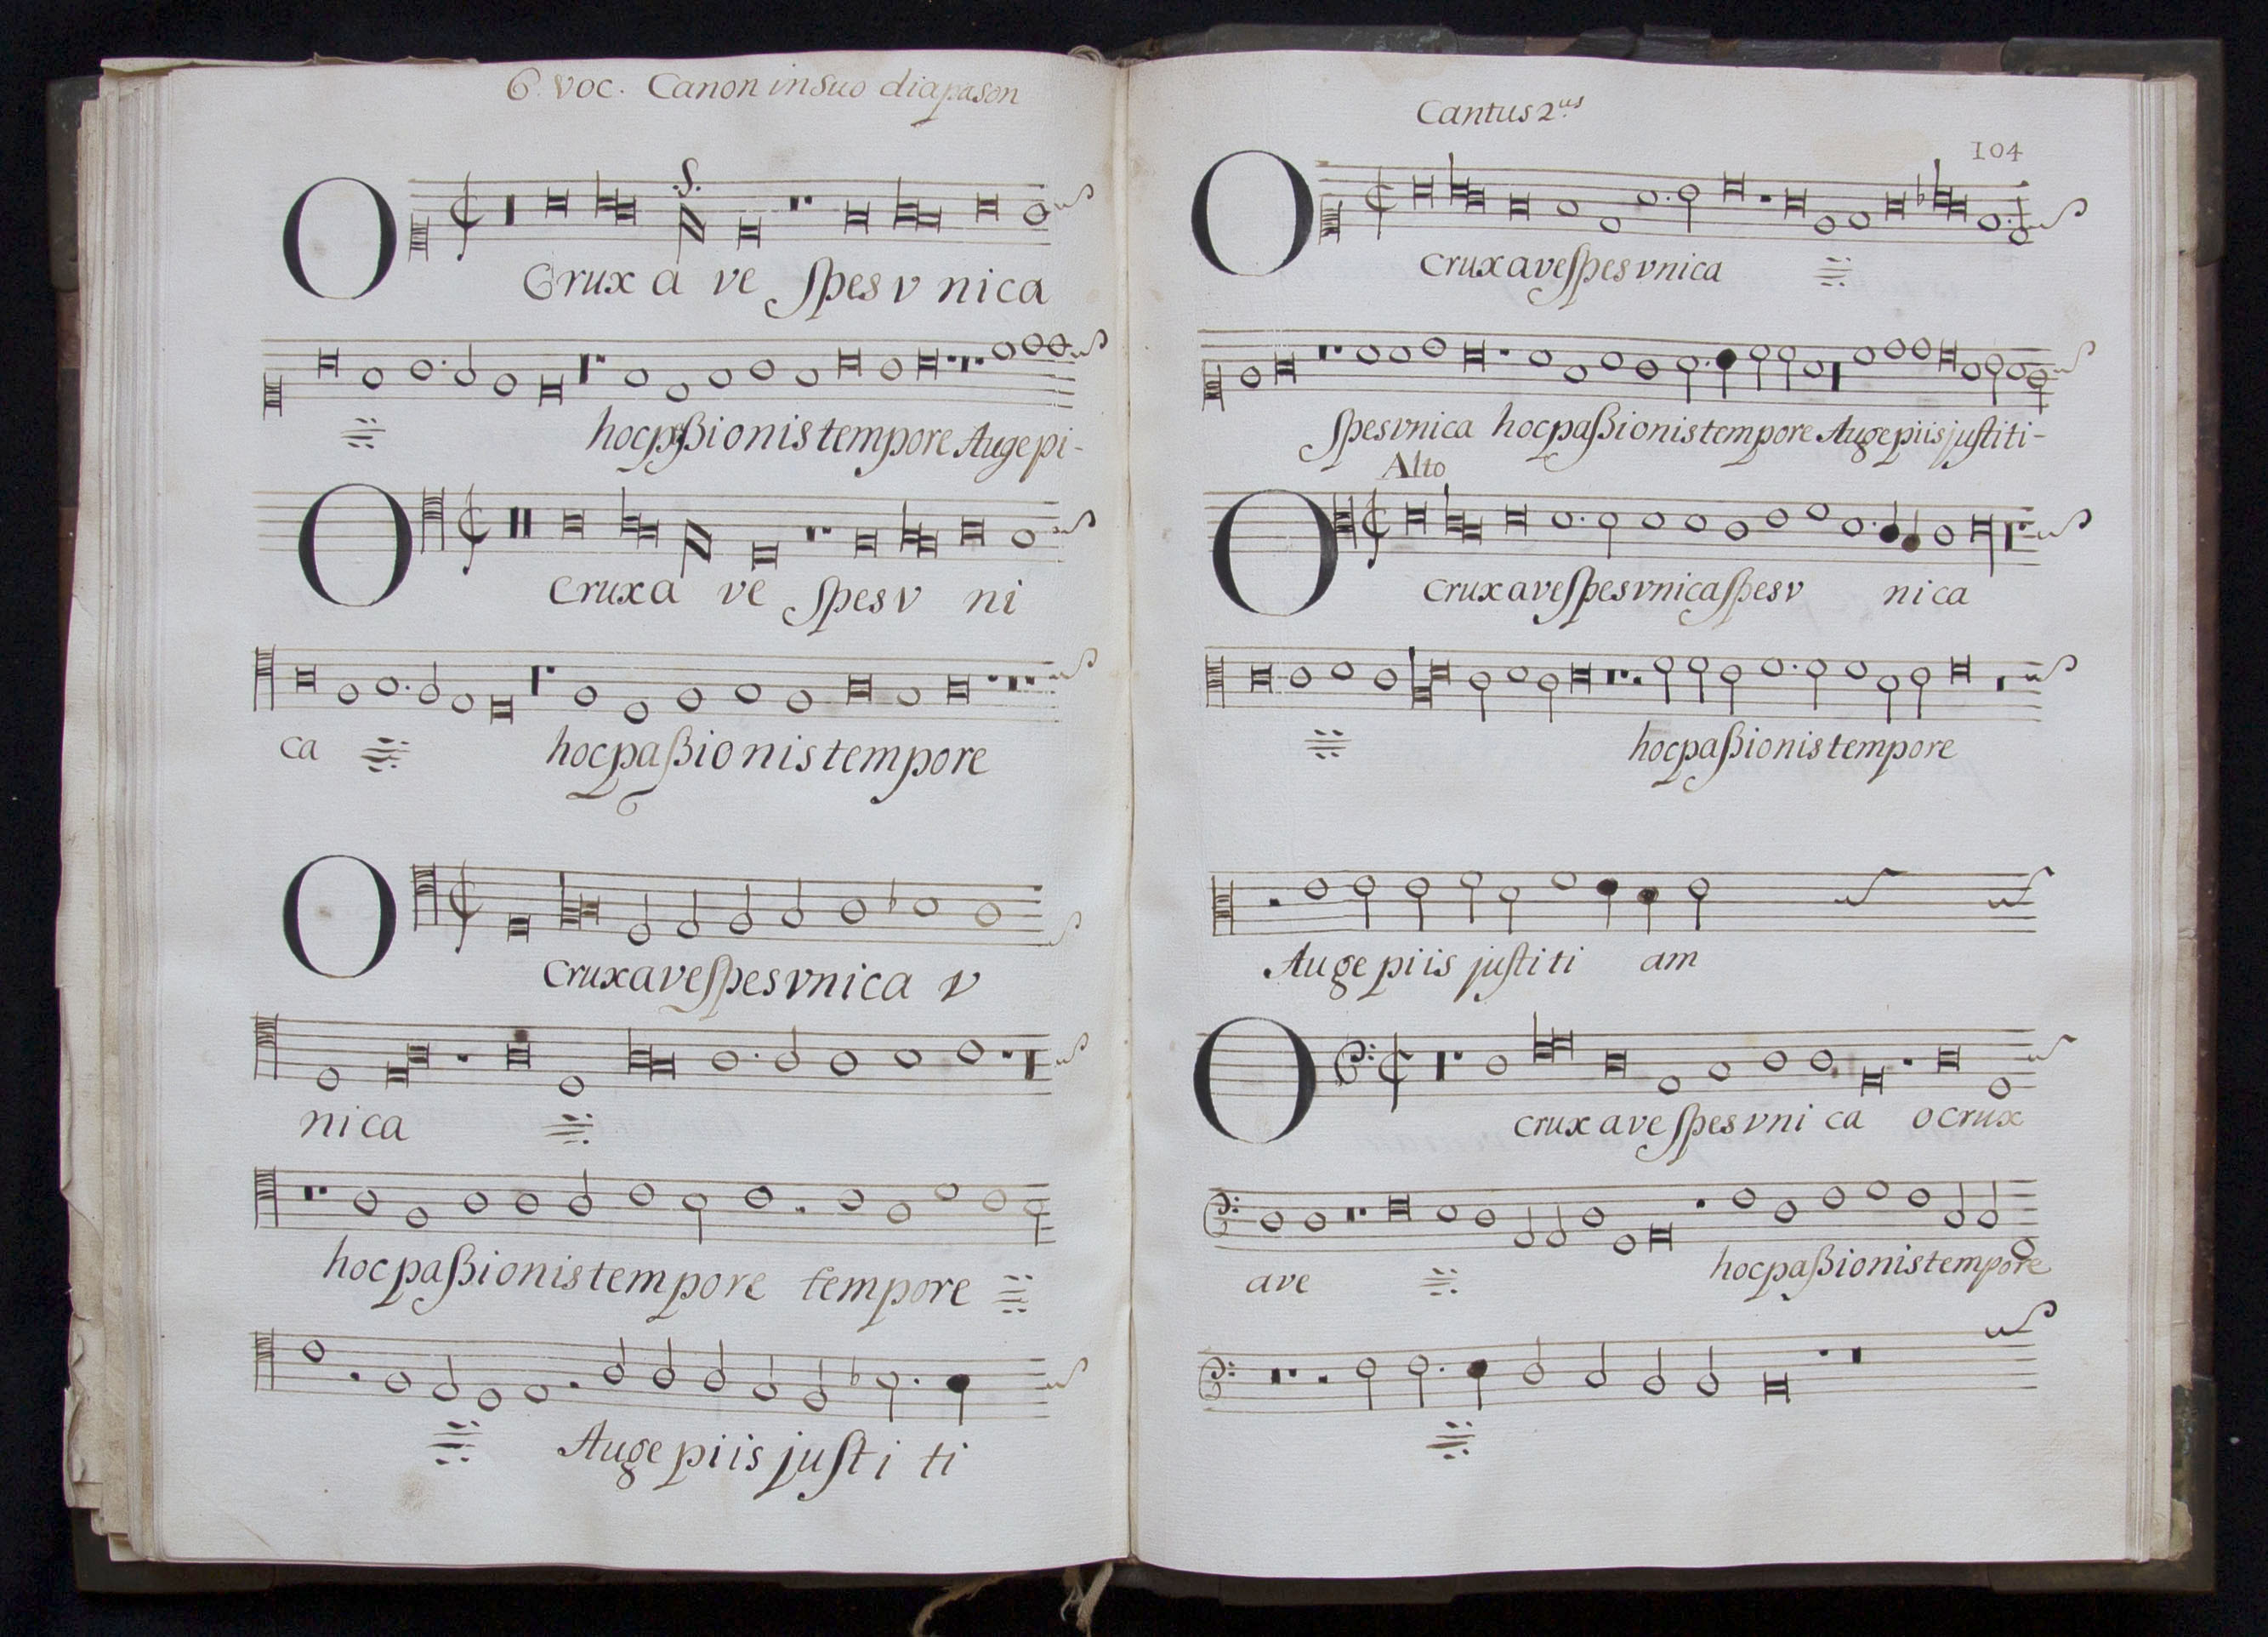 6. voc. Canon in suo diapason
O Crux a ve spes v nica
hoc passionis tempore Auge pi-
O Crux a ve spes v ni
ca hoc passionis tempore
O Crux ave spes vnica v
nica
hoc passionis tempore tempore
Auge piis justi ti
Cantus 2.us
104
O Crux ave spes vnica
spes vnica hoc passionis tempore Auge piis justiti-
Alto
O Crux ave spes vnica spes v nica
hoc passionis tempore
Auge piis justi ti am
O crux ave spes vni ca o crux
ave hoc passionis tempore